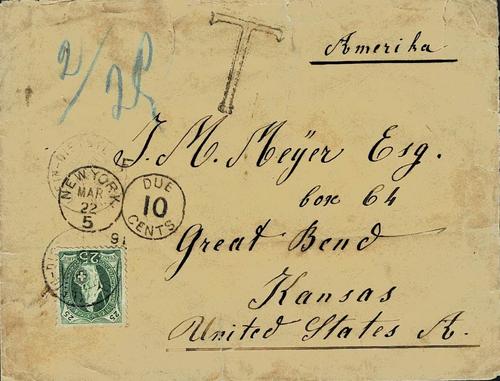 Amerika
2/25
T
J. M. Meÿer Esq.
box 64
Great Bend
Kansas
United States A.
NEW YORK
MAR
22
5
91
DUE
10
CENTS
25
25 25